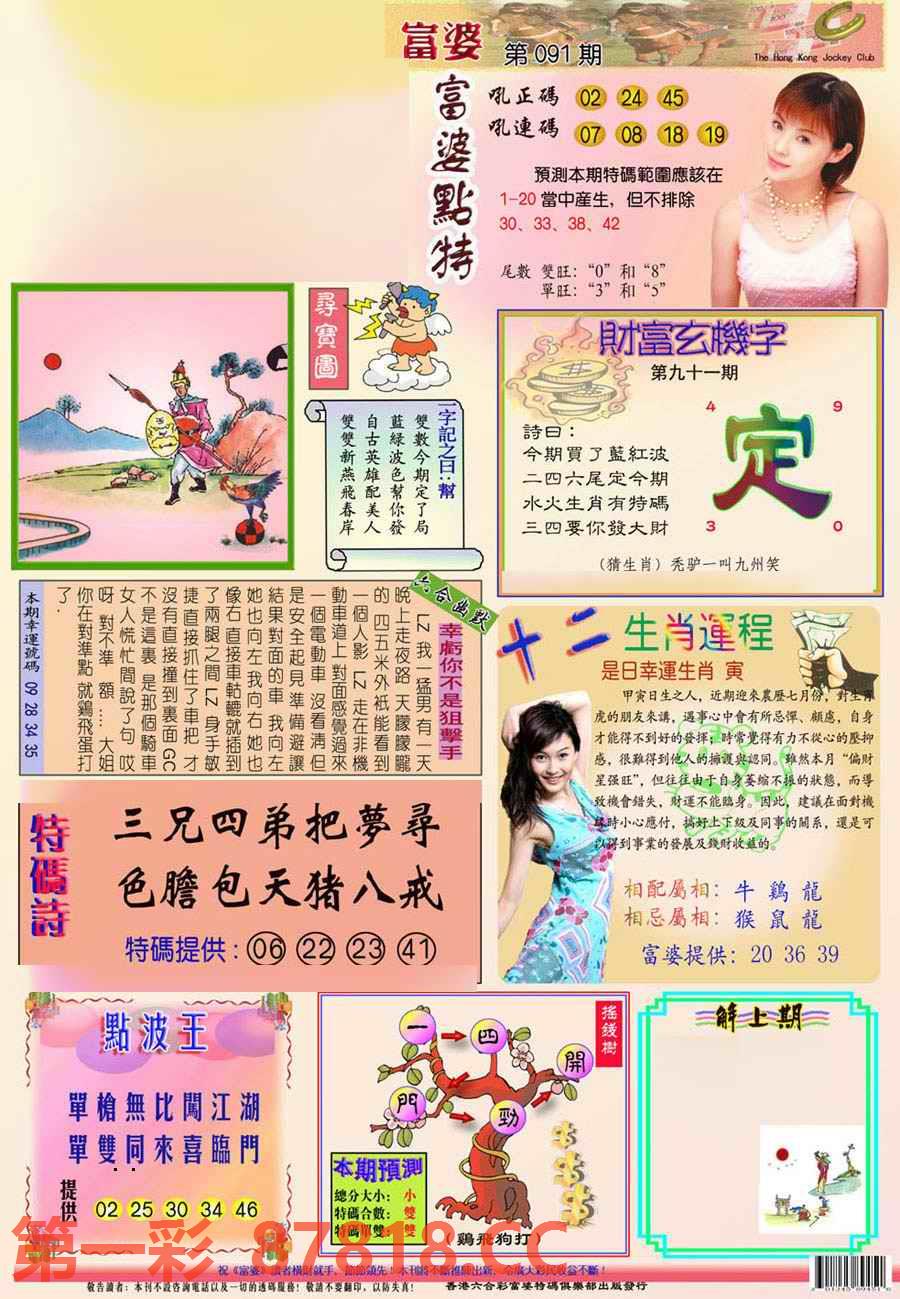 富婆 第091期
The Hong Kong Jockey Club
富婆點特
吼正碼 02 24 45
吼連碼 07 08 18 19
預測本期特碼範圍應該在
1-20當中産生，但不排除
30、33、38、42
尾數 雙旺：“0”和“8”
單旺：“3”和“5”
尋寶圖
一字記之曰：幫
雙數今期定了局
藍綠波色幫你發
自古英雄配美人
雙雙新燕飛春岸
財富玄機字
第九十一期
詩曰：
今期買了藍紅波
二四六尾定今期
水火生肖有特碼
三四要你發大財
4 9
定
3 0
（猜生肖）秃驴一叫九州笑
六合幽默
幸虧你不是狙擊手
LZ 我一猛男 有一天
晚上走夜路 天朦朦朧
的 四五米外衹能看到
一個人影 LZ 走在非機
動車道上 對面感覺過來
一個電動車 沒看淸 但
是安全起見 準備避讓
結果對面的車 我向左
她也向左 我向右 她也
像右 直接車軲轆就插到
了兩腿之間 LZ 身手敏
捷 直接抓住了車把 才
沒有直接撞到裏面 GC
不是這裏 是那個騎車
女人慌忙間說了句 哎
呀 對不準 額 …… 大姐
你在對準點 就鷄飛蛋打
了．
本期幸運號碼 09 28 34 35
十二生肖運程
是日幸運生肖 寅
甲寅日生之人，近期迎來農歷七月份，對生肖
虎的朋友來講，遇事心中會有所忌憚、顧慮，自身
才能得不到好的發揮；時常覺得有力不從心的壓抑
感，很難得到他人的擁護與認同。雖然本月“偏財
星强旺”，但往往由于自身萎縮不振的狀態，而導
致機會錯失，財運不能臨身。因此，建議在面對機
緣時小心應付，搞好上下級及同事的關系，還是可
以得到事業的發展及錢財收益的。
相配屬相：牛 鷄 龍
相忌屬相：猴 鼠 龍
富婆提供：20 36 39
特碼詩
三兄四弟把夢尋
色膽包天猪八戒
特碼提供：06 22 23 41
點波王
單槍無比闖江湖
單雙同來喜臨門
提供 02 25 30 34 46
搖錢樹
一 四 開
門 勁
本期預測
總分大小：小
特碼合數：雙
特碼單雙：雙
（鷄飛狗打）
解上期
第一彩 87818.CC
敬告讀者：本刊不設咨詢電話以及一切的透碼服務！敬請不要翻印，以防失真！
香港六合彩富婆特碼俱樂部出版發行